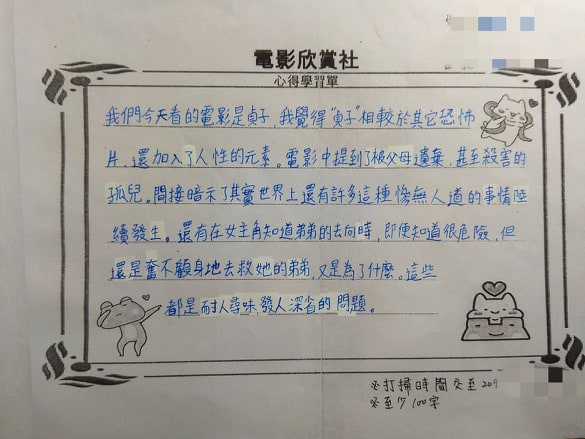 電影欣賞社
心得學習單
我們今天看的電影是貞子,我覺得"貞子"相較於其它恐怖
片,還加入了人性的元素。電影中提到了被父母遺棄,甚至殺害的
孤兒。間接暗示了其實世界上還有許多這種慘無人道的事情陸
續發生。還有在女主角知道弟弟的去向時,即使知道很危險,但
還是奮不顧身地去救她的弟弟,又是為了什麼。這些
都是耐人尋味,發人深省的問題。
※打掃時間交至209
※至少100字